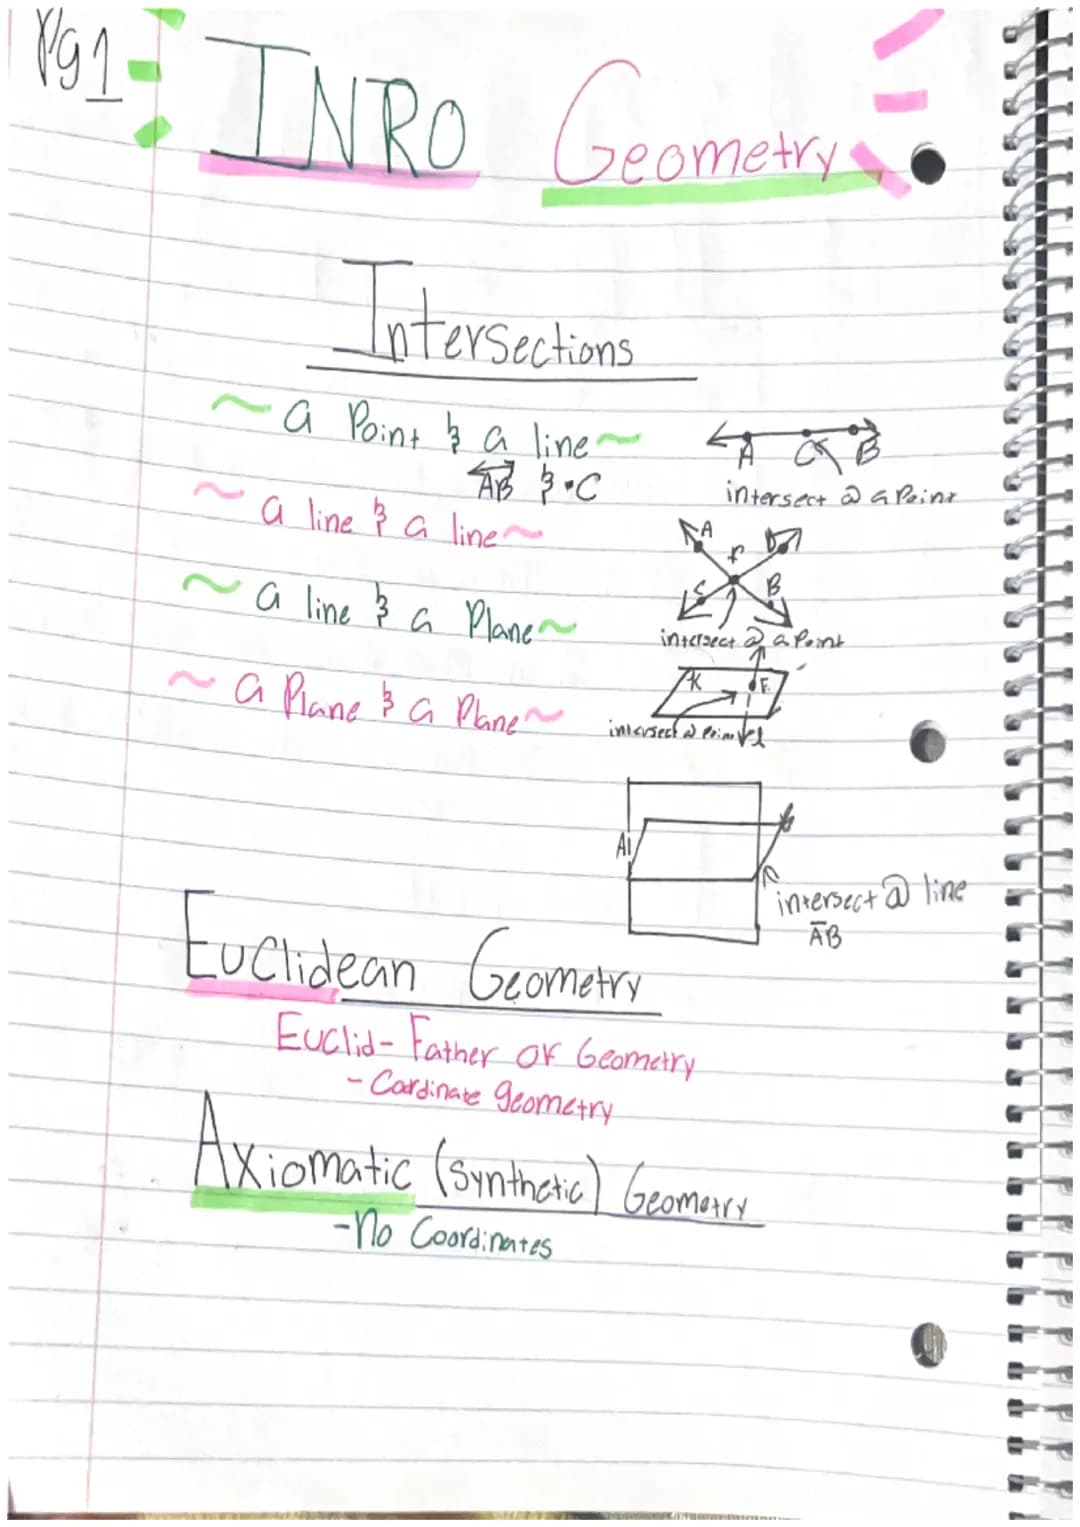 Pg 1
INRO Geometry
Intersections
~ a Point & a line ~
AB & •C
A C B
intersect @ a Point
~ a line & a line ~
A D
C B
intersect @ a Point
~ a line & a Plane ~
K E
intersect @ Point
~ a Plane & a Plane ~
A
intersect @ line
AB
Euclidean Geometry
Euclid - Father of Geometry
- Cordinate geometry
Axiomatic (Synthetic) Geometry
- No Coordinates